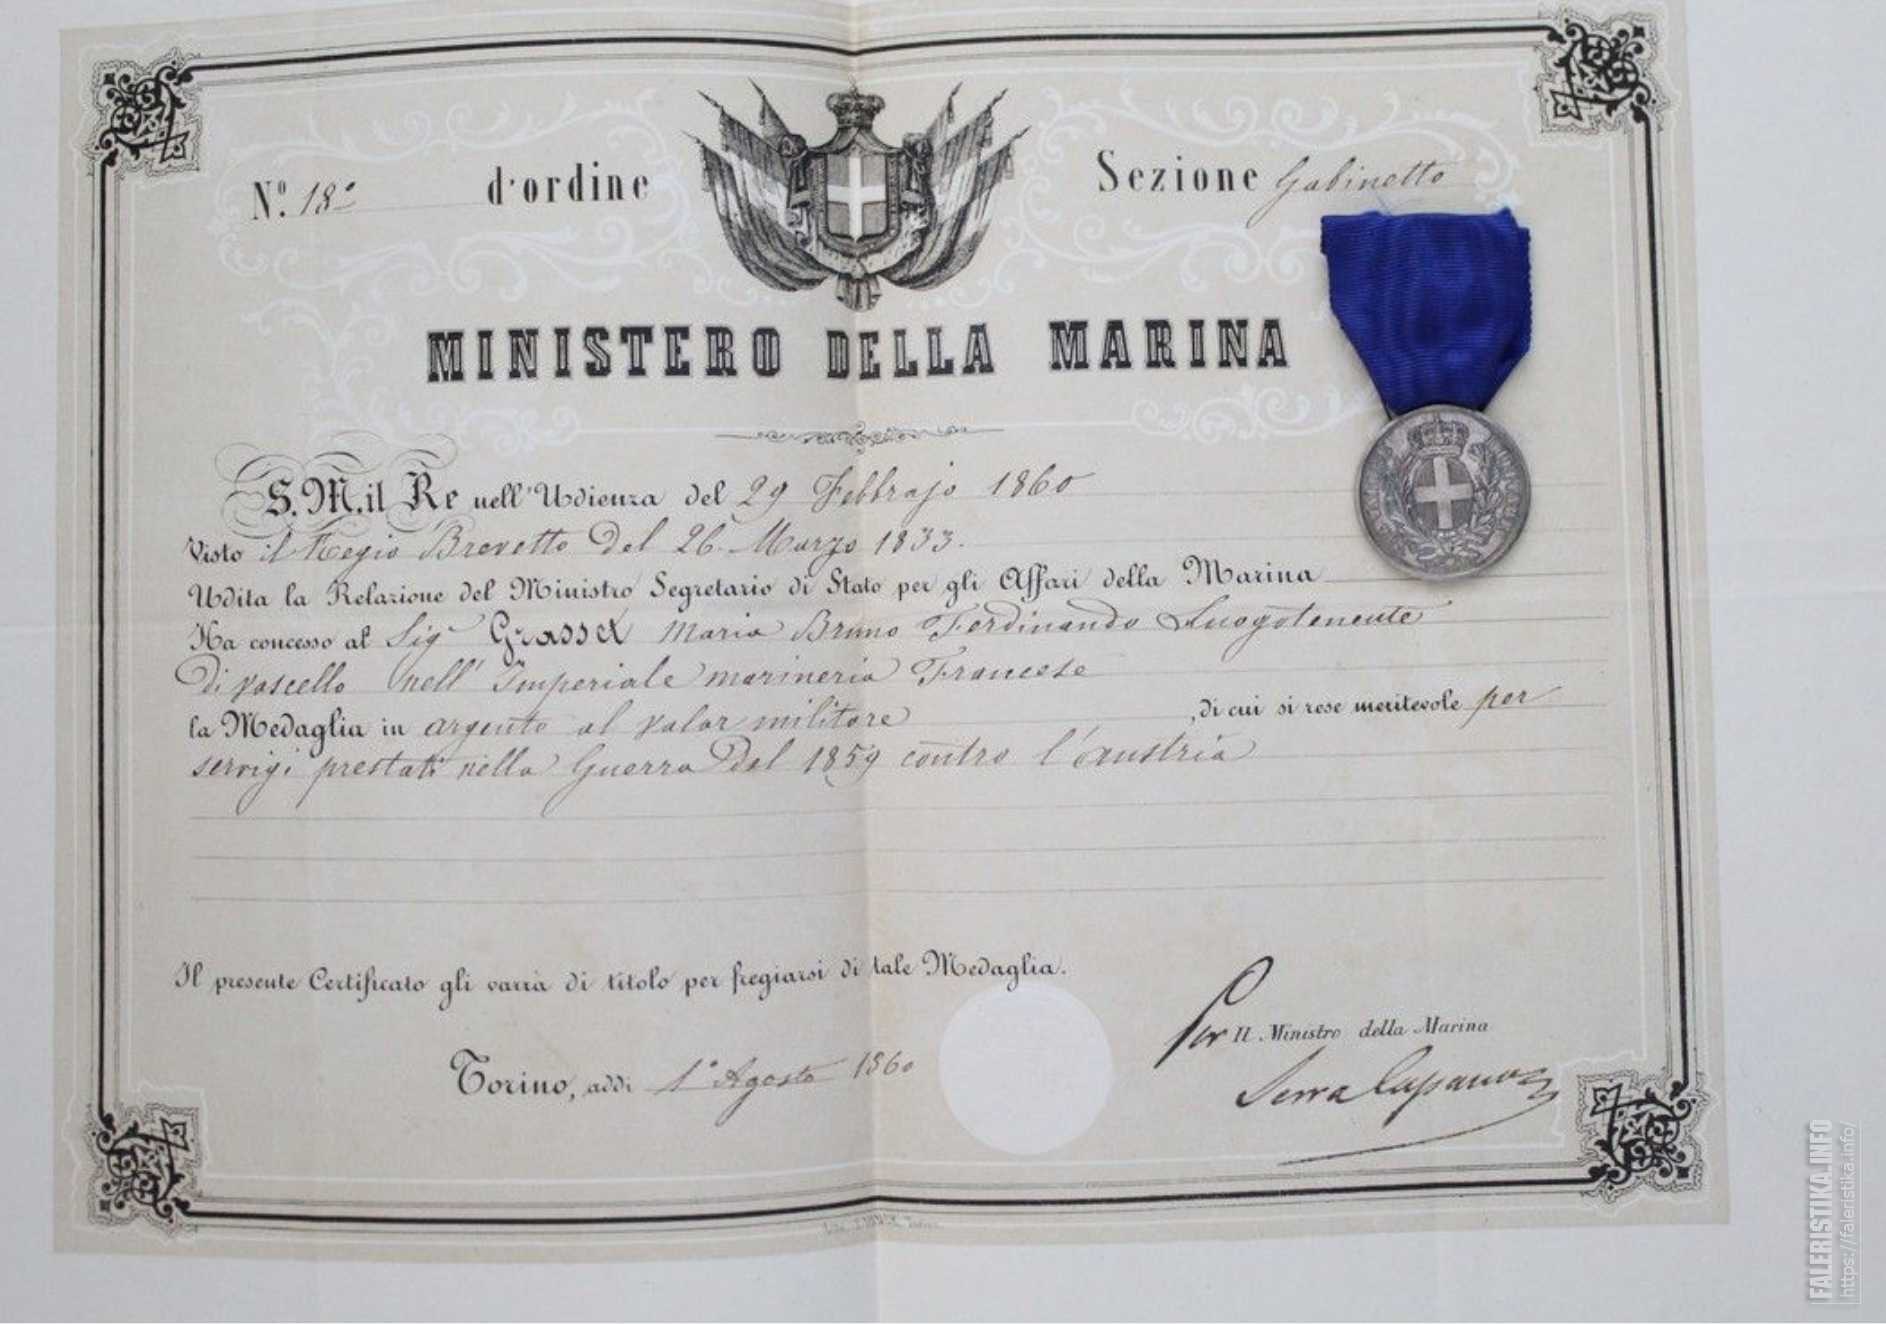 N.º 18º d'ordine
Sezione Gabinetto
MINISTERO DELLA MARINA
S. M. il Re nell'Udienza del 29 Febbrajo 1860
Visto il Regio Brevetto del 26 Marzo 1833.
Udita la Relazione del Ministro Segretario di Stato per gli Affari della Marina
Ha concesso al Sigr Grasset Maria Bruno Ferdinando Luogotenente
di vascello nell' Imperiale marineria Francese
la Medaglia in argento al valor militare, di cui si rese meritevole per
servigi prestati nella Guerra del 1859 contro l'Austria
Il presente Certificato gli varrà di titolo per fregiarsi di tale Medaglia.
Torino, addì 1º Agosto 1860
Per Il Ministro della Marina
Serra
FALERISTIKA.INFO
https://faleristika.info/